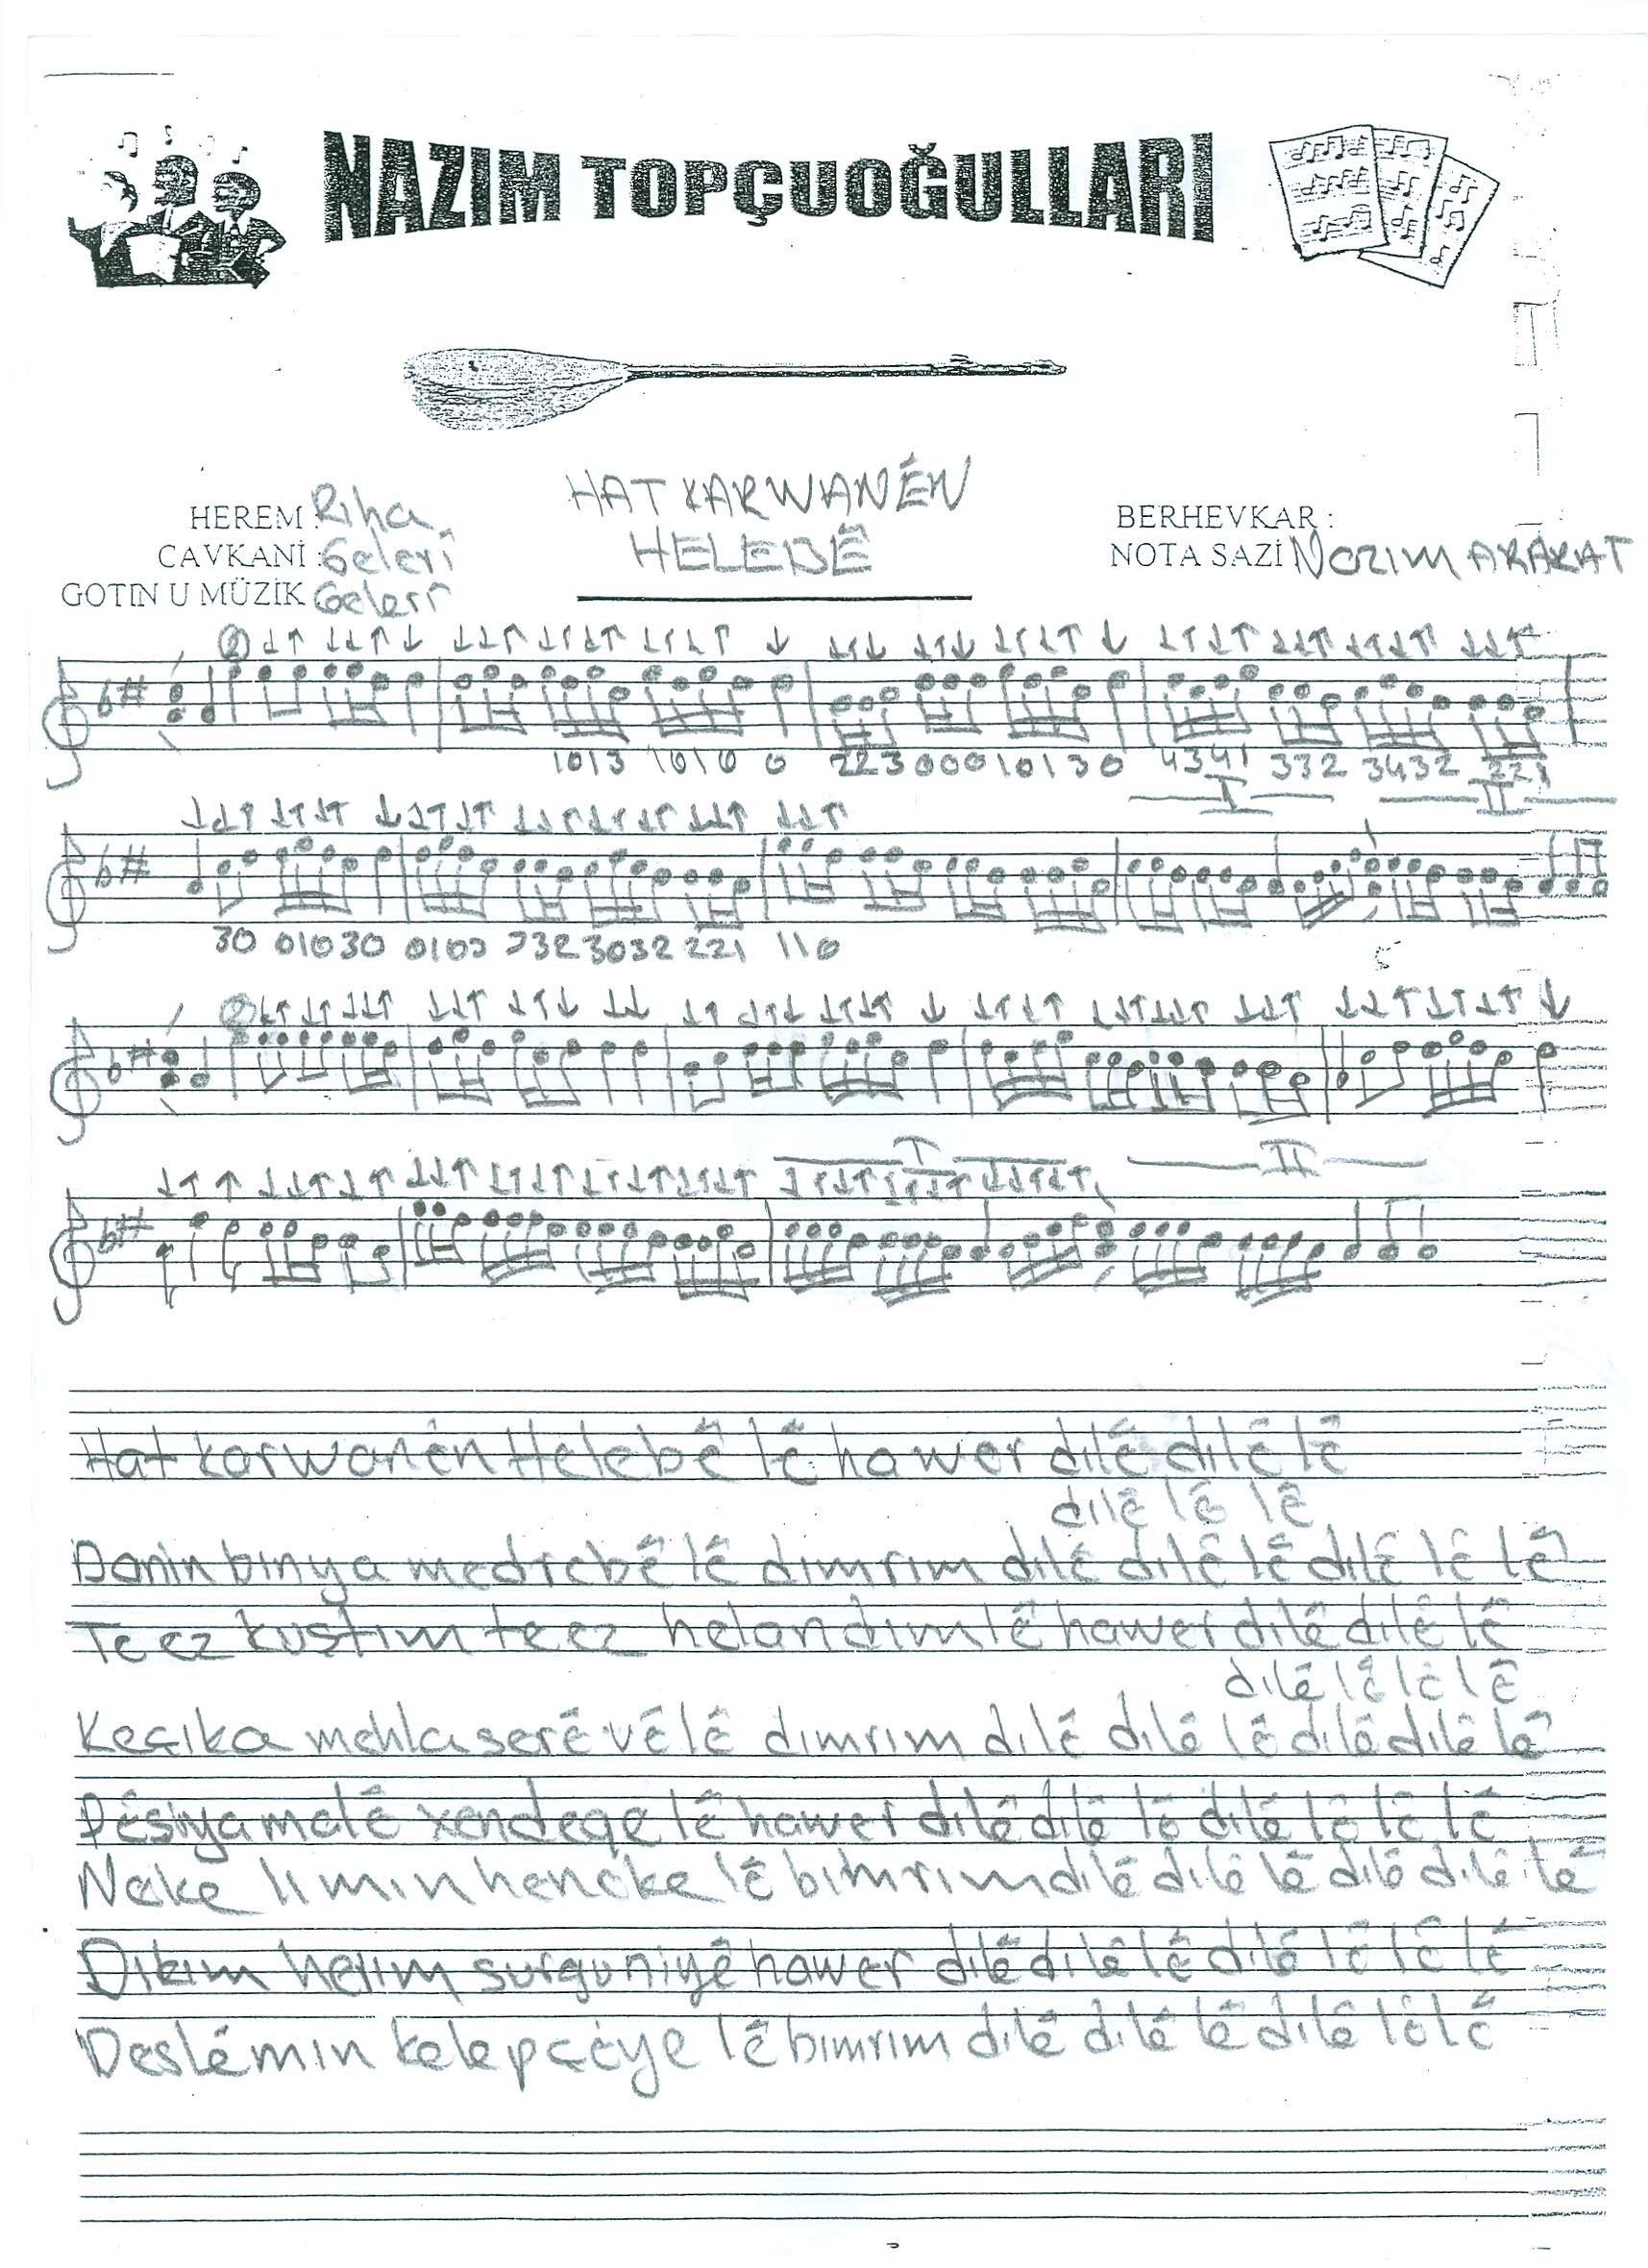 NAZIM TOPÇUOĞULLARI
HAT KARWANÊN
HELEBÊ
HEREM : Riha
CAVKANİ : Gelerî
GOTIN U MÜZİK Gelerî
BERHEVKAR :
NOTA SAZİ NAZIM ARARAT
1013 1010 0 223 000 10130 4341 332 3432 221
I II
30 01030 0103 332 3032 221 110
I II
Hat karwanên Helebê lê hawer dılê dılê lê
dılê lê lê
Danîn bınya medrebê lê dımrım dılê dılê lê dılê lê lê
Te ez kuştım te ez helandım lê hawer dılê dılê lê
dılê lê lê lê
Keçıka mehla serê vê lê dımrım dılê dılê lê dılê dılê lê
Pêşiya malê xendeqe lê hawer dılê dılê lê dılê lê lê lê
Neke lı mın heneke lê bımrım dılê dılê lê dılê dılê lê
Dıkım herım surguniyê hawer dılê dılê lê dılê lê lê lê
Destê mın kelepçeye lê bımrım dılê dılê lê dılê lê lê